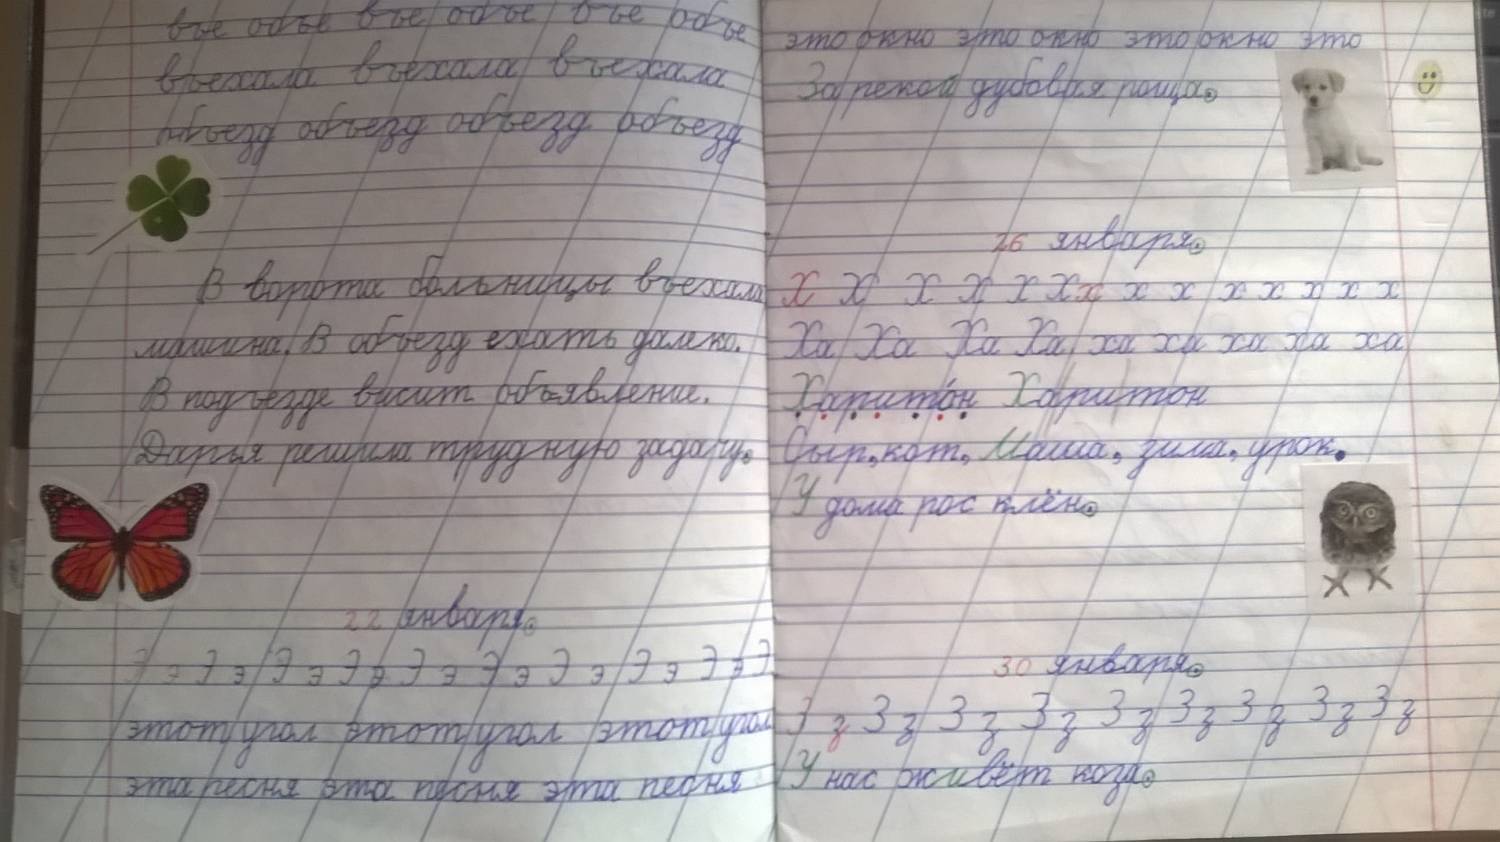 ъе объе въе объе ъье объе
въехала въехала въехала
объезд объезд объезд объезд
В ворота больницы въехала
машина. В объезд ехать далеко.
В подъезде висит объявление.
Дарья решила трудную задачу.
22 января.
Э э Э э Э э Э э Э э Э э Э э Э э Э э Э
этот угол этот угол этот угол
эта песня эта песня эта песня
это окно это окно это окно это
За рекой дубовая роща.
26 января.
Х Х Х Х Х Х х х х х х х х х
Ха Ха Ха Ха ха ха ха ха ха
Харитон Харитон
Сыр, кот, Маша, зима, урок.
У дома рос клён.
30 января.
З з З з З з З з З з З з З з З з З з
У нас живёт коза.